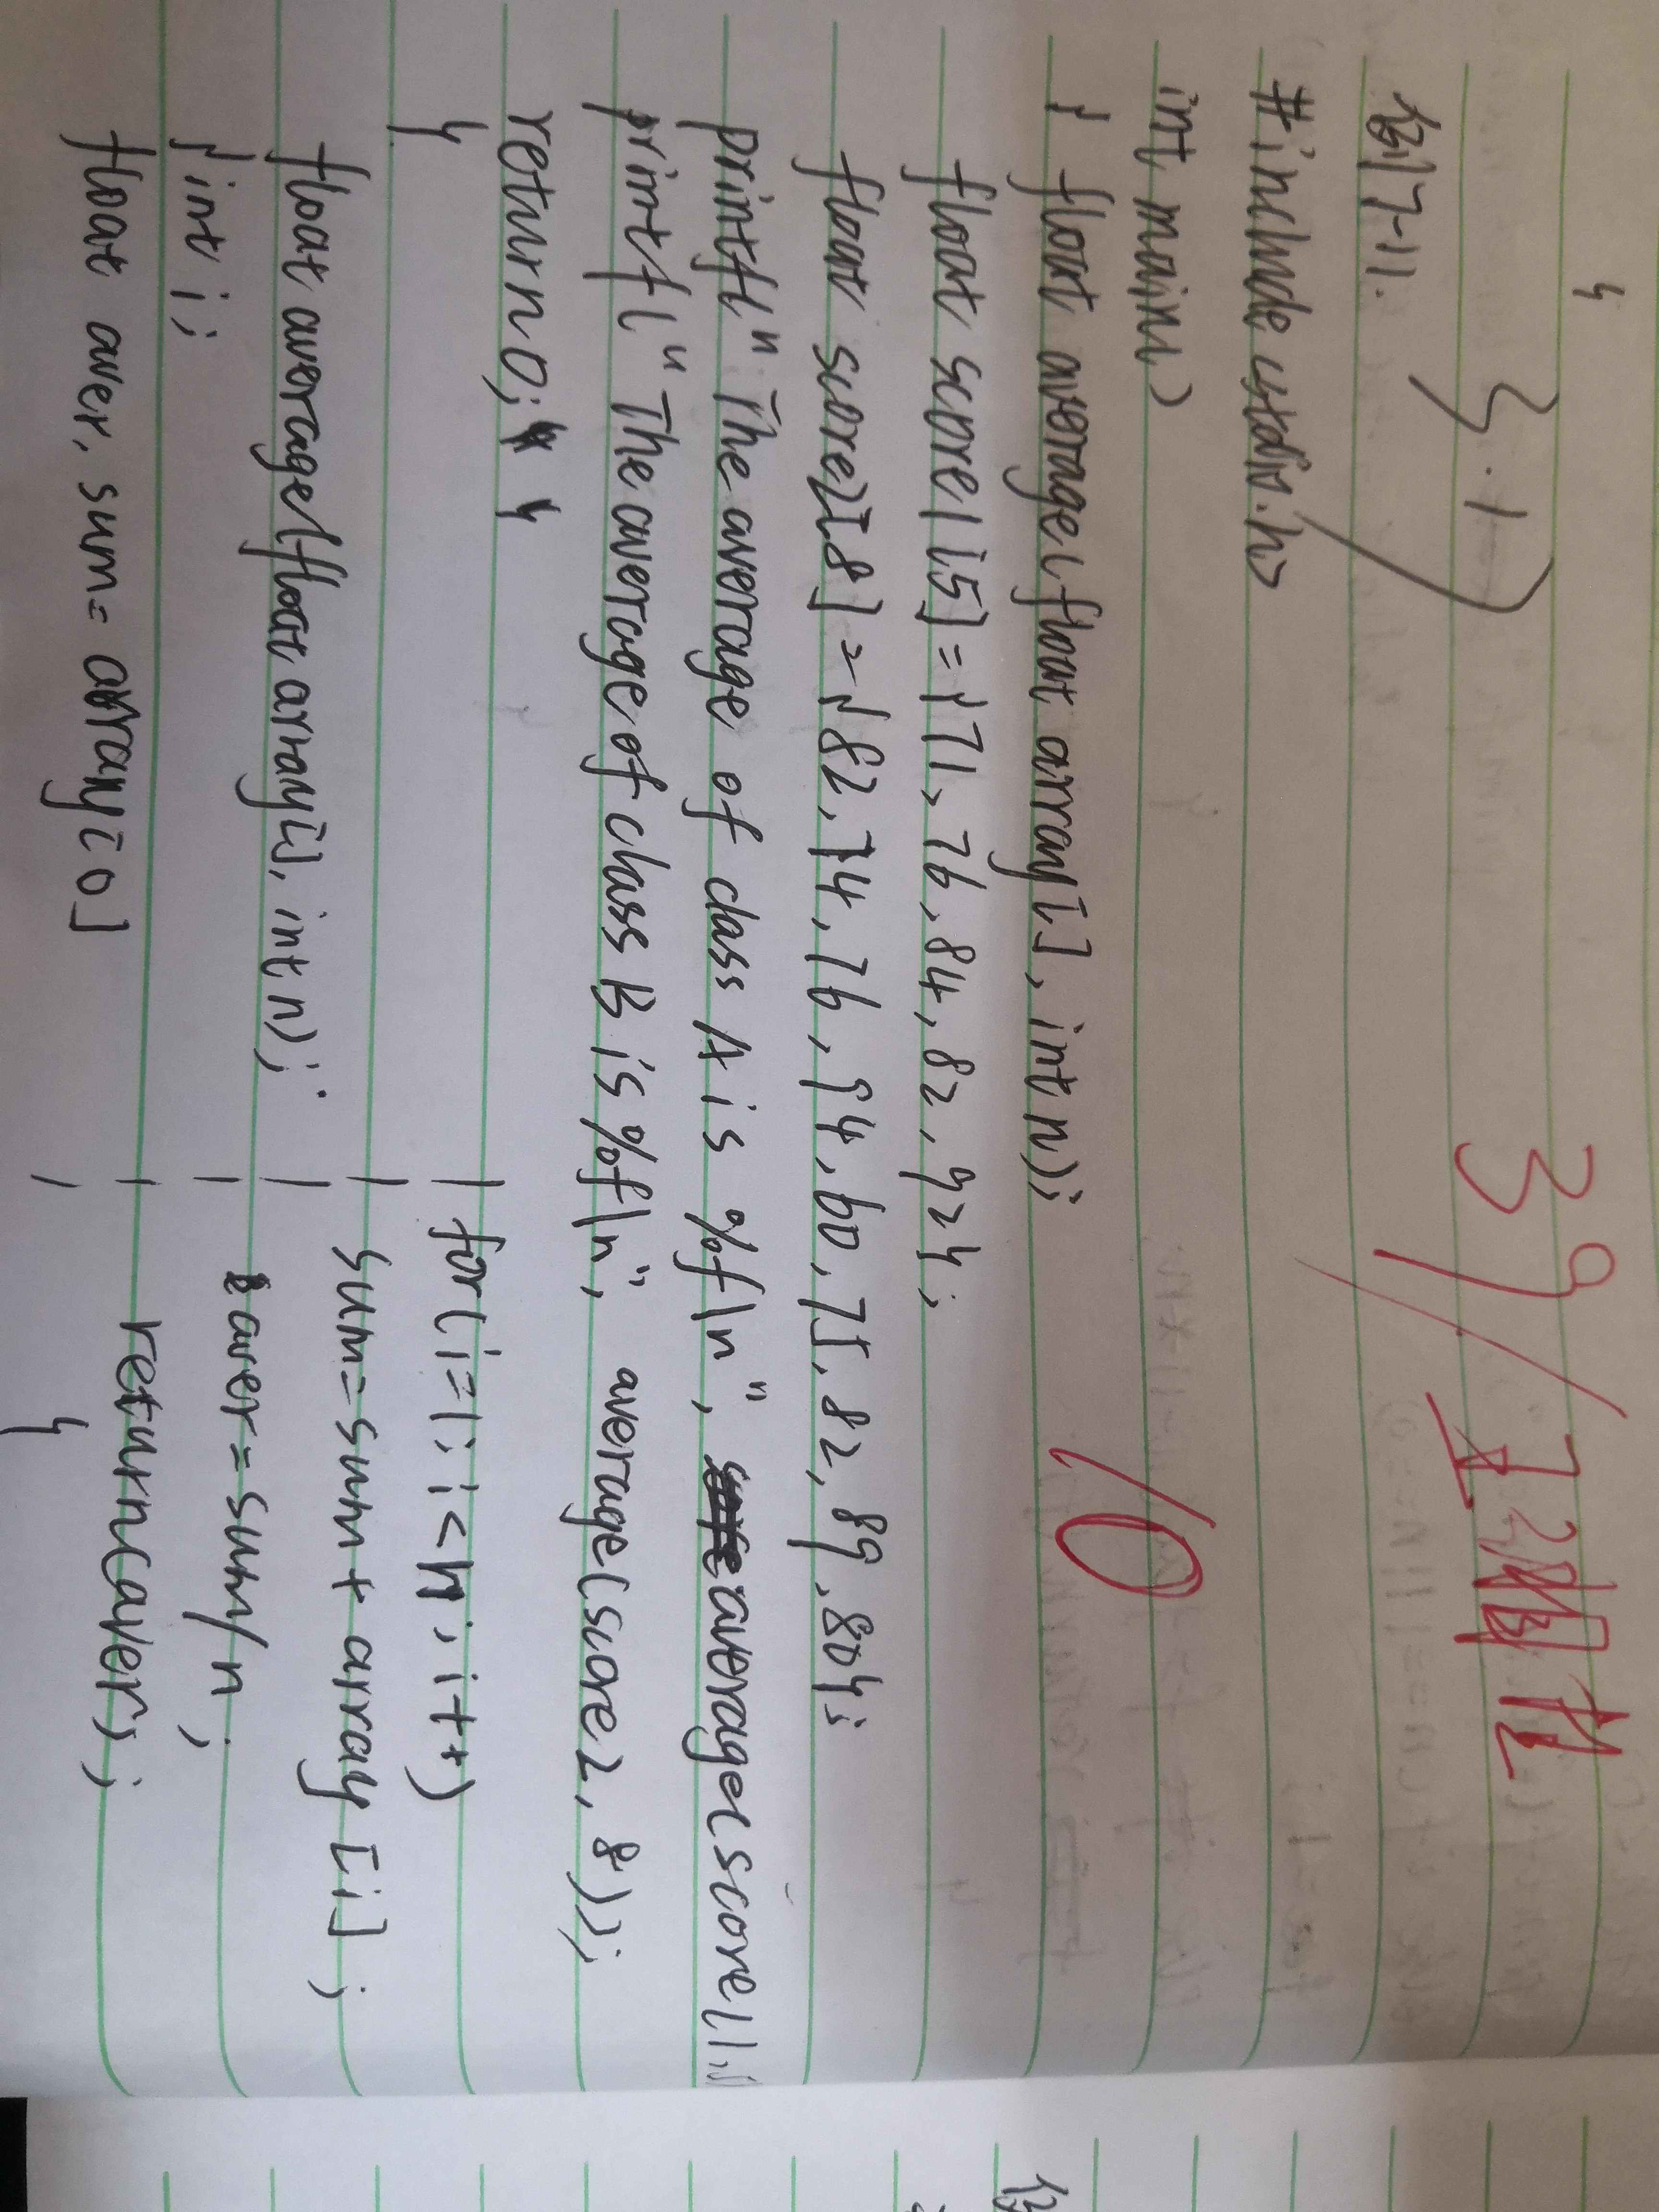 }
5.1)
39
10
例7-11.
#include <stdio.h>
int main()
{ float average(float array[], int n);
float score1[5]={71,76,84,82,92};
float score2[8]={82,74,76,94,60,75,82,89,80};
printf("The average of class A is %f\n", average(score1,
printf("The average of class B is %f\n", average(score2,8));
return 0;
}
float average(float array[], int n);
{ int i;
float aver, sum=array[0]
for(i=1;i<n;i++)
sum=sum+array[i];
aver=sum/n;
return(aver);
}
例